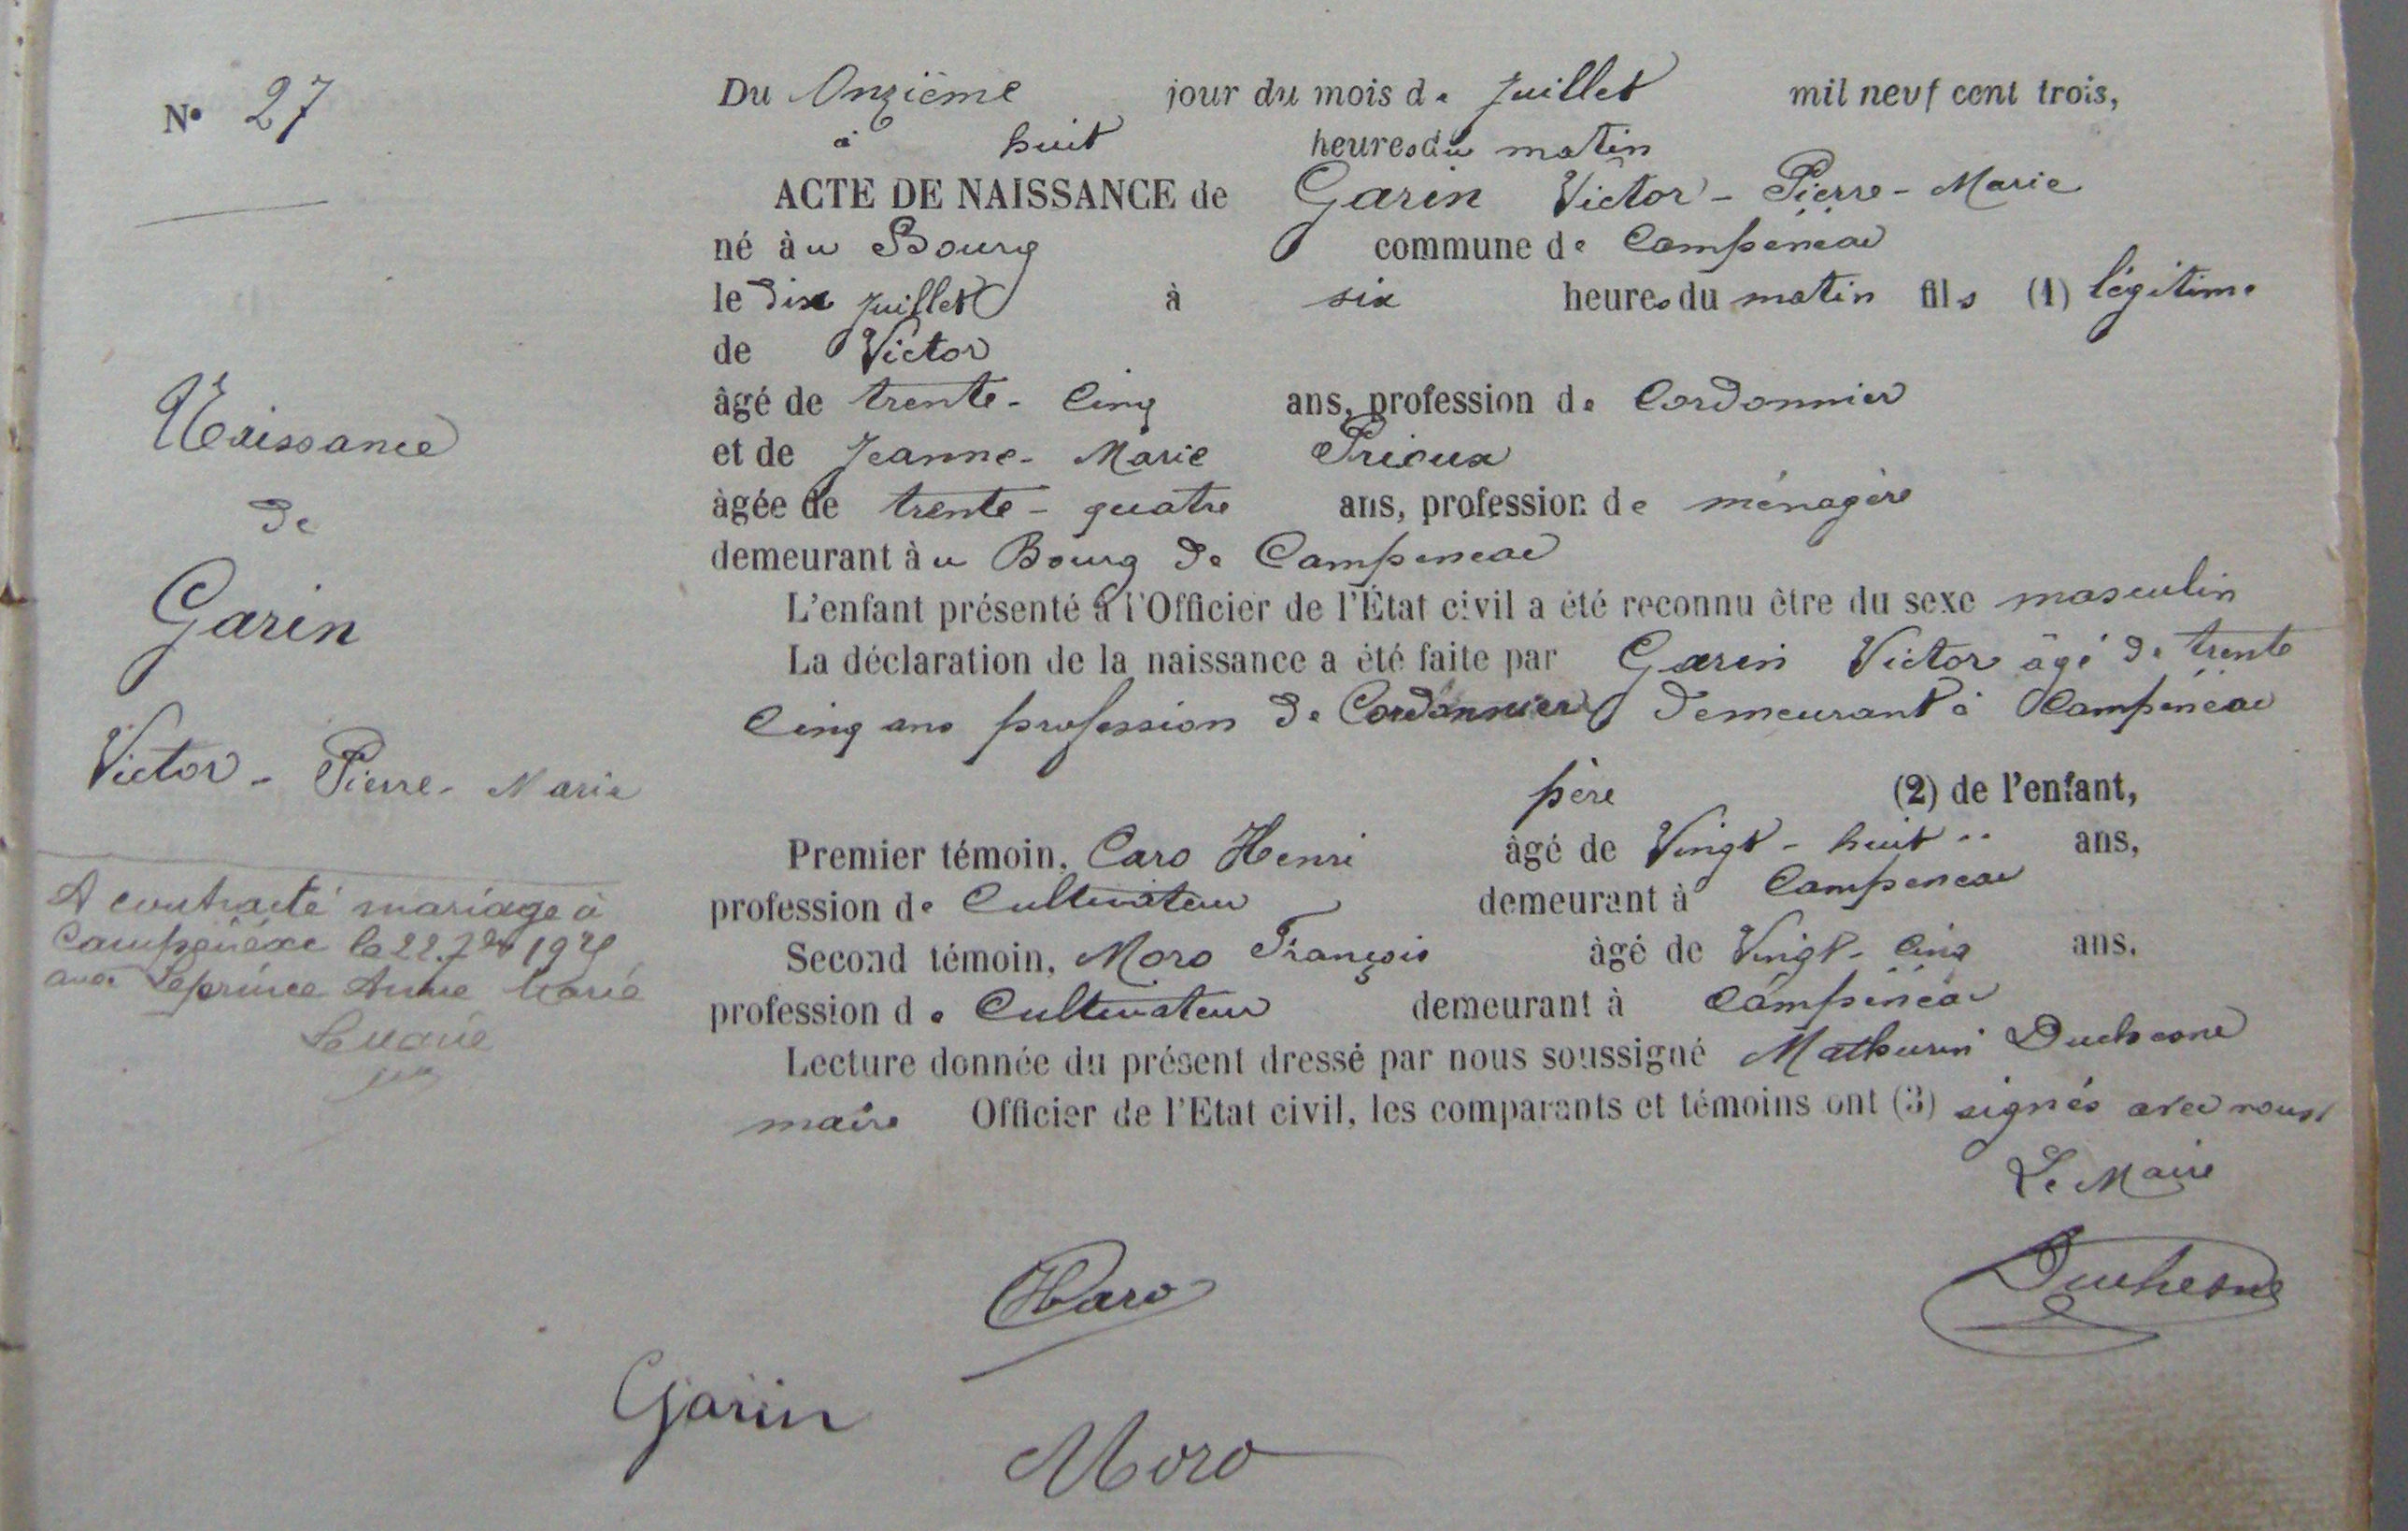 N° 27
Naissance
de
Garin
Victor - Pierre - Marie
A contracté mariage à
Campénéac le 22 7bre 19
avec Leprince Anne Marie
Le Maire
Du Onzième jour du mois de Juillet mil neuf cent trois,
à huit heures du matin
ACTE DE NAISSANCE de Garin Victor - Pierre - Marie
né àu Bourg commune de Campénéac
le dix juillet à six heures du matin fils (1) légitime
de Victor
âgé de trente - Cinq ans, profession de Cordonnier
et de Jeanne - Marie Prieux
âgée de trente - quatre ans, profession de ménagère
demeurant àu Bourg de Campeneac
L'enfant présenté à l'Officier de l'État civil a été reconnu être du sexe masculin
La déclaration de la naissance a été faite par Garin Victor âgé de trente
Cinq ans profession de Cordonnier demeurant à Campénéac
père (2) de l'enfant,
Premier témoin, Caro Henri âgé de Vingt - huit ans,
profession de Cultivateur demeurant à Campeneac
Second témoin, Moro François âgé de Vingt - Cinq ans.
profession de Cultivateur demeurant à Campénéac
Lecture donnée du présent dressé par nous soussigné Mathurin Duchesne
maire Officier de l'Etat civil, les comparants et témoins ont (3) signés avec nous
Le Maire
HCaro
Duchesne
Garin
Moro